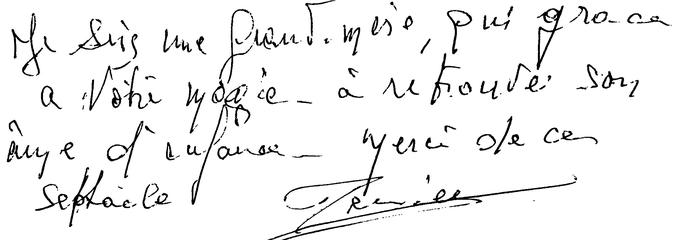 Je suis une grand-mère, qui grace
a votre magie - à retrouvé son
âme d'enfance - merci de ce
septacle